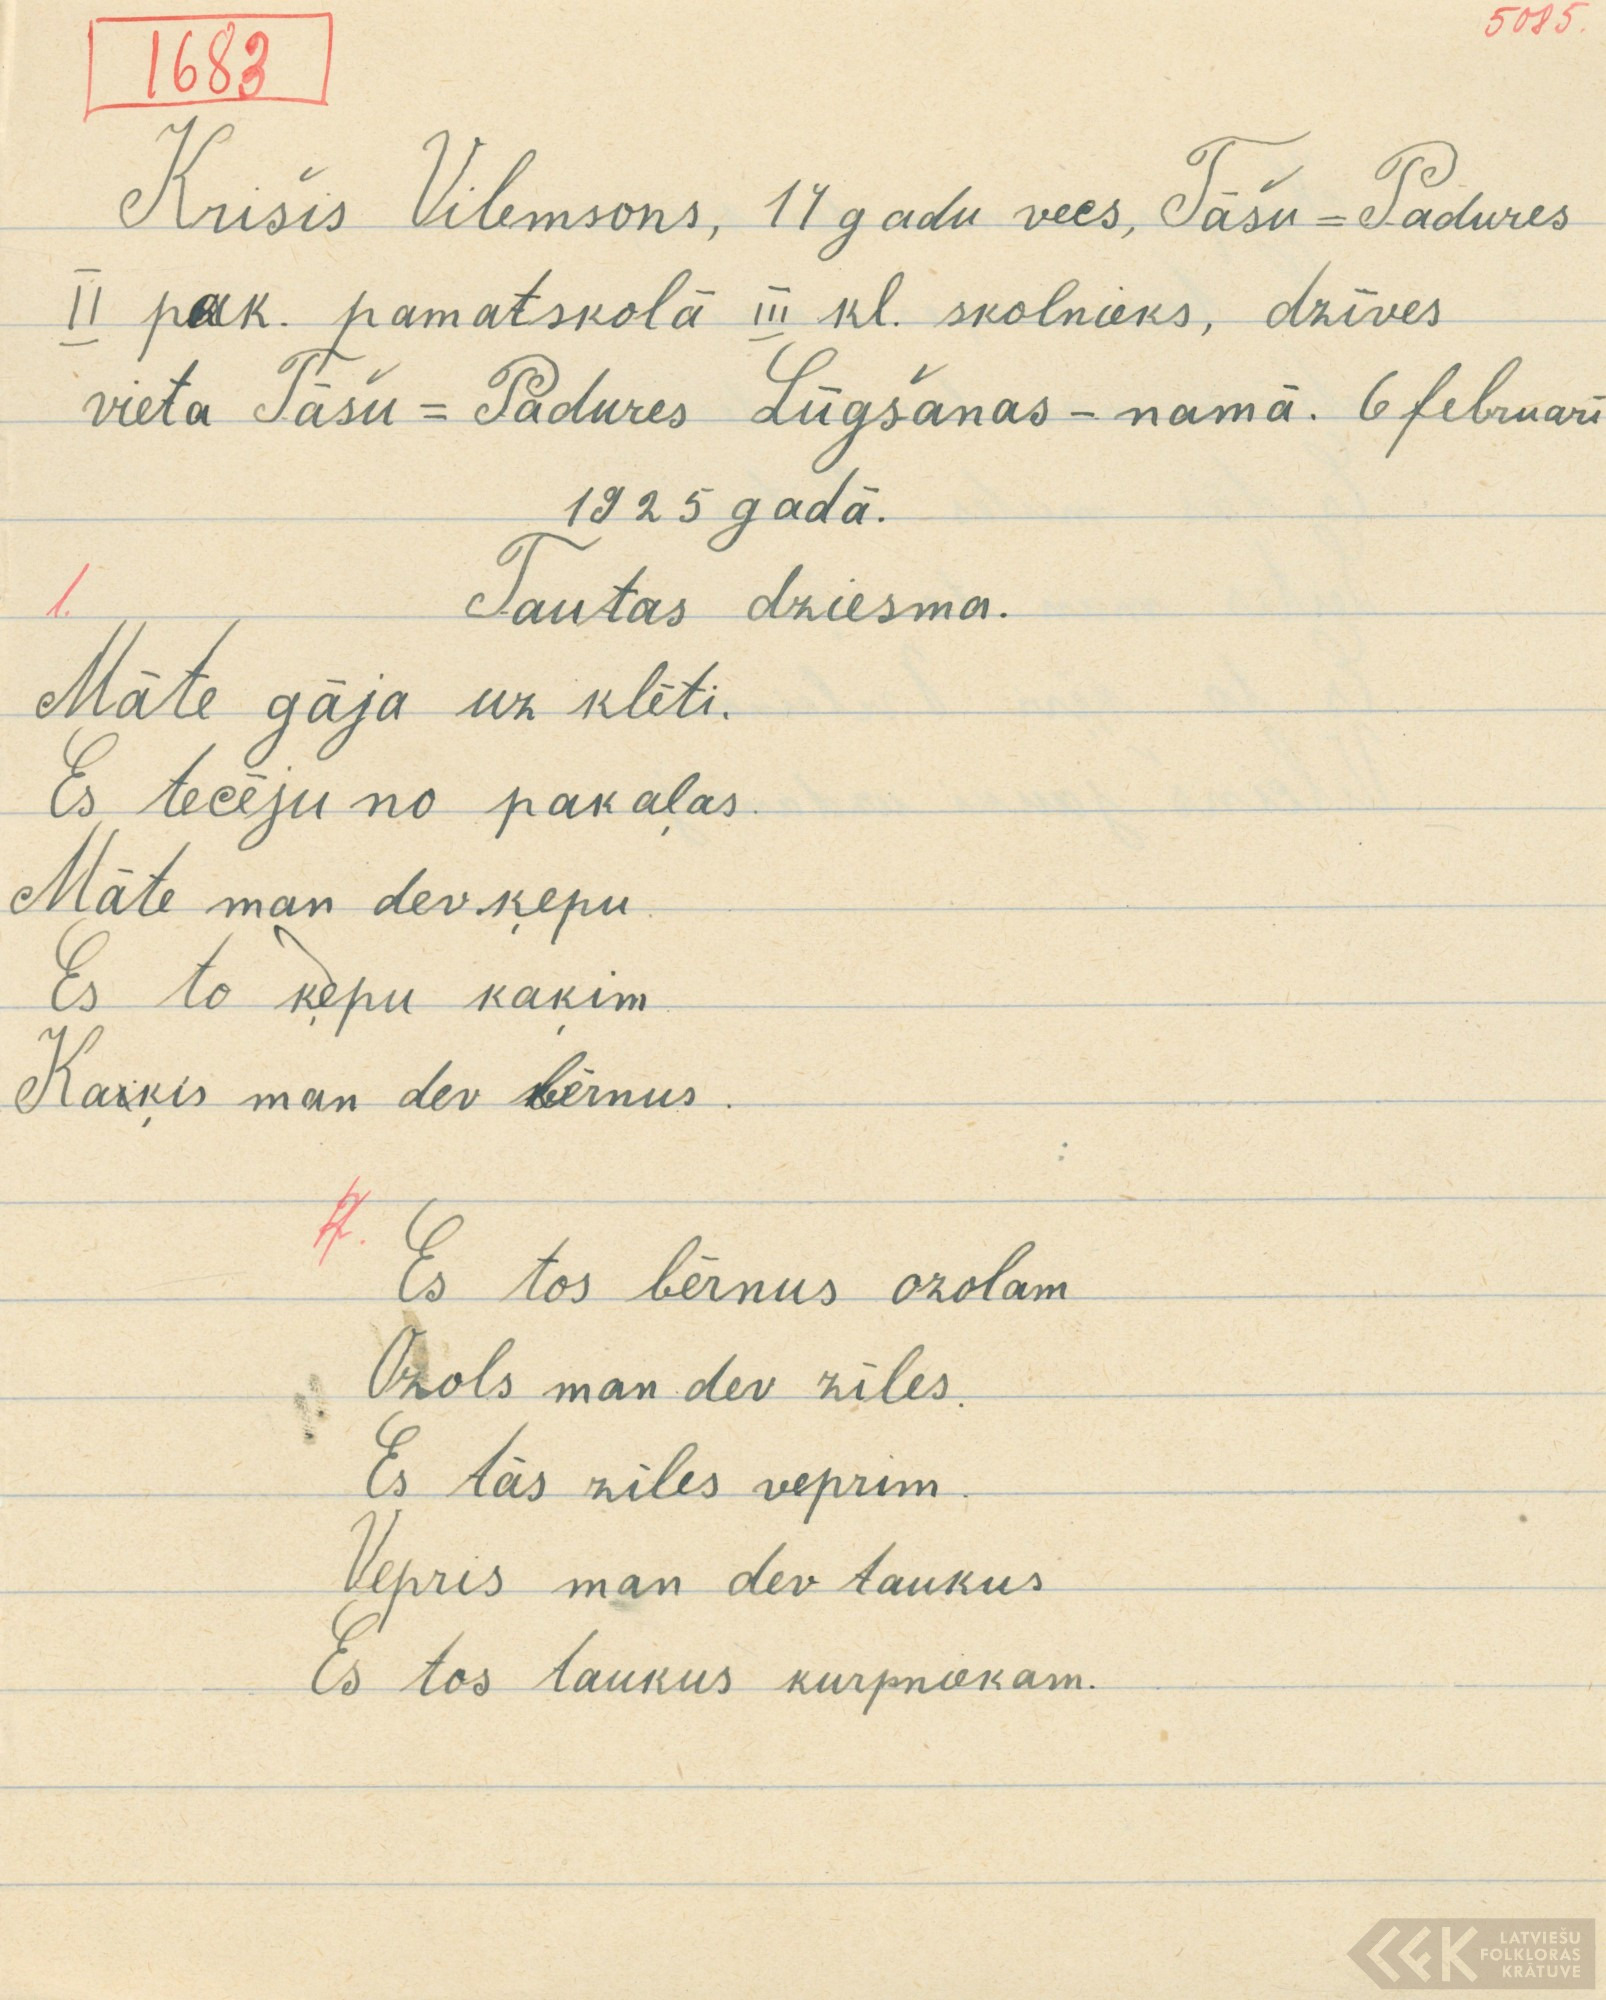 1683
5085.
Krišis Vilemsons, 14 gadu vecs, Tāšu = Padures
II pak. pamatskolā III kl. skolnieks, dzīves
vieta Tāšu = Padures Lūgšanas - namā. 6 februarī
1925 gadā.
1. Tautas dziesma.
Māte gāja uz klēti.
Es tecēju no pakaļas.
Māte man dev ķepu
Es to ķepu kaķim
Kaķis man dev bērnus.
Es tos bērnus ozolam
Ozols man dev zīles.
Es tās zīles veprim.
Vepris man dev taukus
Es tos taukus kurpniekam.
LATVIEŠU
FOLKLORAS
KRĀTUVE